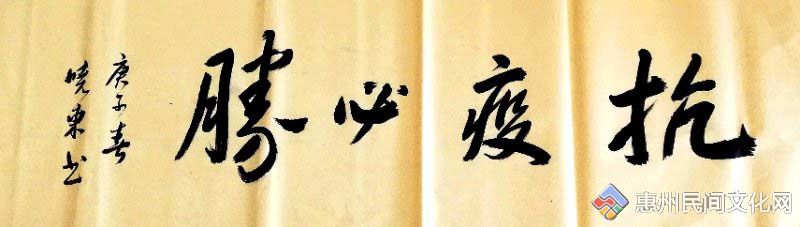 抗疫必勝
庚子春
曉東书
惠州民间文化网